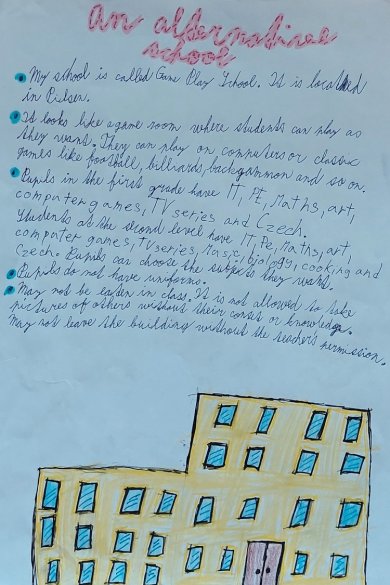 An alternative
school
My school is called Game Play School. It is located
in Pilsen.
It looks like a game room where students can play as
they want. They can play on computers or classic
games like football, billiards, backgammon and so on.
Pupils in the first grade have IT, PE, Maths, art,
computer games, TV series and Czech.
Students at the second level have IT, Pe, Maths, art,
computer games, TV series, Music, biology, cooking and
Czech. Pupils can choose the subjects they want.
Pupils do not have uniforms.
May not be eaten in class. It is not allowed to take
pictures of others without their conset or knowledge.
May not leave the building without the teacher's permission.